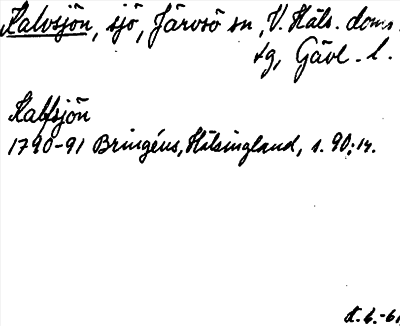 Kalvsjön, sjö, Järvsö sn, V. Häls. doms.
tg, Gävl. l.
Kalfsjön
1790-91 Bringéus, Hälsingland, s. 90; 14.